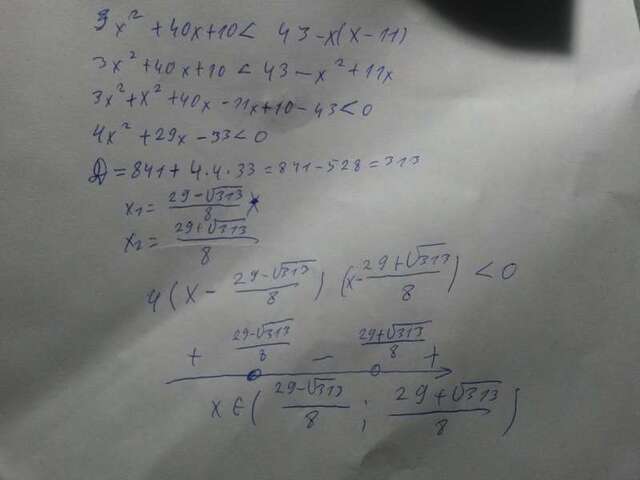 3x² + 40x + 10 < 43 - x(x - 11)
3x² + 40x + 10 < 43 - x² + 11x
3x² + x² + 40x - 11x + 10 - 43 < 0
4x² + 29x - 33 < 0
D = 841 + 4·4·33 = 841 - 528 = 313
x₁ = (29 - √313)/8
x₂ = (29 + √313)/8
4(x - (29 - √313)/8) (x - (29 + √313)/8) < 0
+ (29 - √313)/8 - (29 + √313)/8 +
x ∈ ((29 - √313)/8 ; (29 + √313)/8)